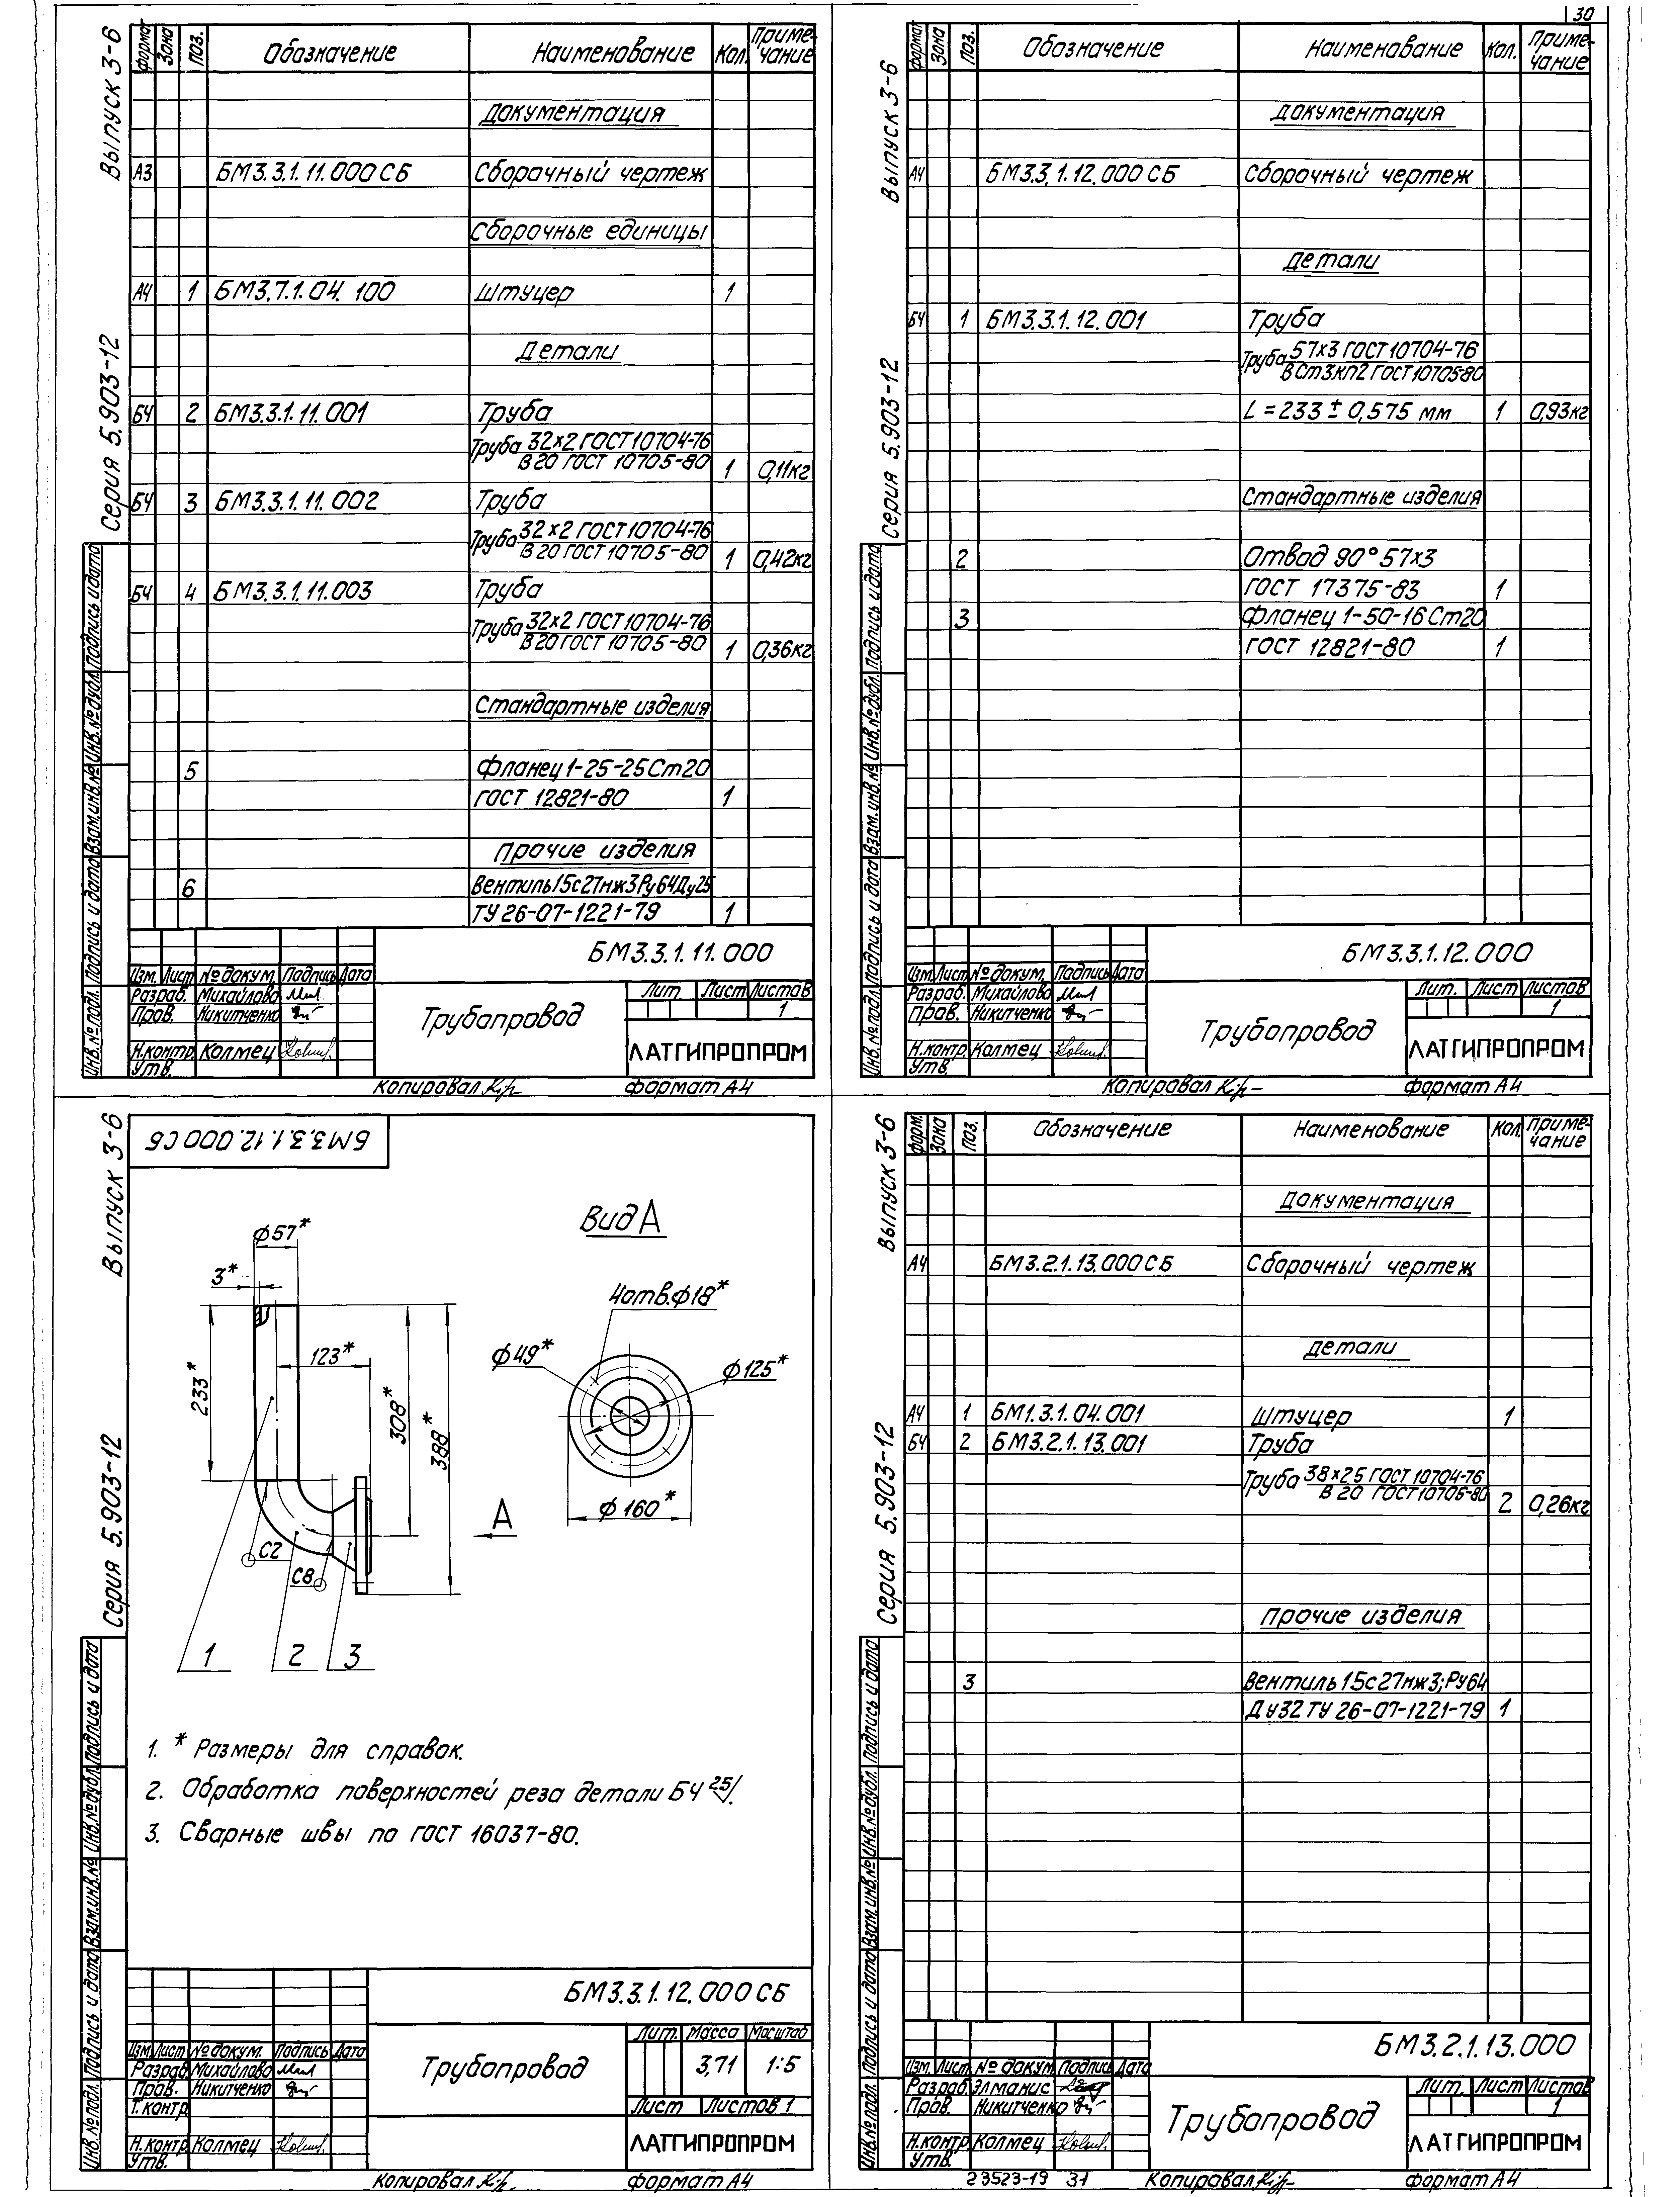 30
Выпуск 3-6
Серия 5.903-12
Формат Зона Поз. Обозначение Наименование Кол. Примечание
Документация
А3 БМ3.3.1.11.000 СБ Сборочный чертеж
Сборочные единицы
А4 1 БМ3.7.1.04.100 Штуцер 1
Детали
БЧ 2 БМ3.3.1.11.001 Труба
Труба 32х2 ГОСТ 10704-76
В 20 ГОСТ 10705-80 1 0,11кг
БЧ 3 БМ3.3.1.11.002 Труба
Труба 32х2 ГОСТ 10704-76
В 20 ГОСТ 10705-80 1 0,42кг
БЧ 4 БМ3.3.1.11.003 Труба
Труба 32х2 ГОСТ 10704-76
В 20 ГОСТ 10705-80 1 0,36кг
Стандартные изделия
5 Фланец 1-25-25 Ст20
ГОСТ 12821-80 1
Прочие изделия
6 Вентиль 15с27нж3 Ру64 Ду25
ТУ 26-07-1221-79 1
Инв.№ подл. Подпись и дата Взам.инв.№ Инв.№ дубл. Подпись и дата
БМ3.3.1.11.000
Изм. Лист № докум. Подпись Дата
Разраб. Михайлова
Пров. Никитченко
Н.контр. Колмец
Утв.
Трубопровод
Лит. Лист Листов
1
ЛАТГИПРОПРОМ
Копировал Формат А4
Выпуск 3-6
Серия 5.903-12
Формат Зона Поз. Обозначение Наименование Кол. Примечание
Документация
А4 БМ3.3.1.12.000 СБ Сборочный чертеж
Детали
БЧ 1 БМ3.3.1.12.001 Труба
Труба 57х3 ГОСТ 10704-76
В Ст3кп2 ГОСТ 10705-80
L = 233 ± 0,575 мм 1 0,93кг
Стандартные изделия
2 Отвод 90° 57х3
ГОСТ 17375-83 1
3 Фланец 1-50-16 Ст20
ГОСТ 12821-80 1
Инв.№ подл. Подпись и дата Взам.инв.№ Инв.№ дубл. Подпись и дата
БМ3.3.1.12.000
Изм. Лист № докум. Подпись Дата
Разраб. Михайлова
Пров. Никитченко
Н.контр. Колмец
Утв.
Трубопровод
Лит. Лист Листов
1
ЛАТГИПРОПРОМ
Копировал Формат А4
Выпуск 3-6
Серия 5.903-12
БМ3.3.1.12.000 СБ
Вид А
ф57*
3*
233*
123*
308*
388*
4отв.ф18*
ф49*
ф125*
ф160*
А
С2
С8
1 2 3
1. * Размеры для справок.
2. Обработка поверхностей реза детали БЧ 25/.
3. Сварные швы по ГОСТ 16037-80.
Инв.№ подл. Подпись и дата Взам.инв.№ Инв.№ дубл. Подпись и дата
БМ3.3.1.12.000 СБ
Изм. Лист № докум. Подпись Дата
Разраб. Михайлова
Пров. Никитченко
Т.контр.
Н.контр. Колмец
Утв.
Трубопровод
Лит. Масса Масштаб
3,71 1:5
Лист Листов 1
ЛАТГИПРОПРОМ
Копировал Формат А4
Выпуск 3-6
Серия 5.903-12
Форм. Зона Поз. Обозначение Наименование Кол. Примечание
Документация
А4 БМ3.2.1.13.000 СБ Сборочный чертеж
Детали
А4 1 БМ1.3.1.04.001 Штуцер 1
БЧ 2 БМ3.2.1.13.001 Труба
Труба 38х25 ГОСТ 10704-76
В 20 ГОСТ 10705-80 2 0,26кг
Прочие изделия
3 Вентиль 15с27нж3; Ру64
Ду32 ТУ 26-07-1221-79 1
Инв.№ подл. Подпись и дата Взам.инв.№ Инв.№ дубл. Подпись и дата
БМ3.2.1.13.000
Изм. Лист № докум. Подпись Дата
Разраб. Элманис
Пров. Никитченко
Н.контр. Колмец
Утв.
Трубопровод
Лит. Лист Листов
1
ЛАТГИПРОПРОМ
23523-19 31 Копировал Формат А4